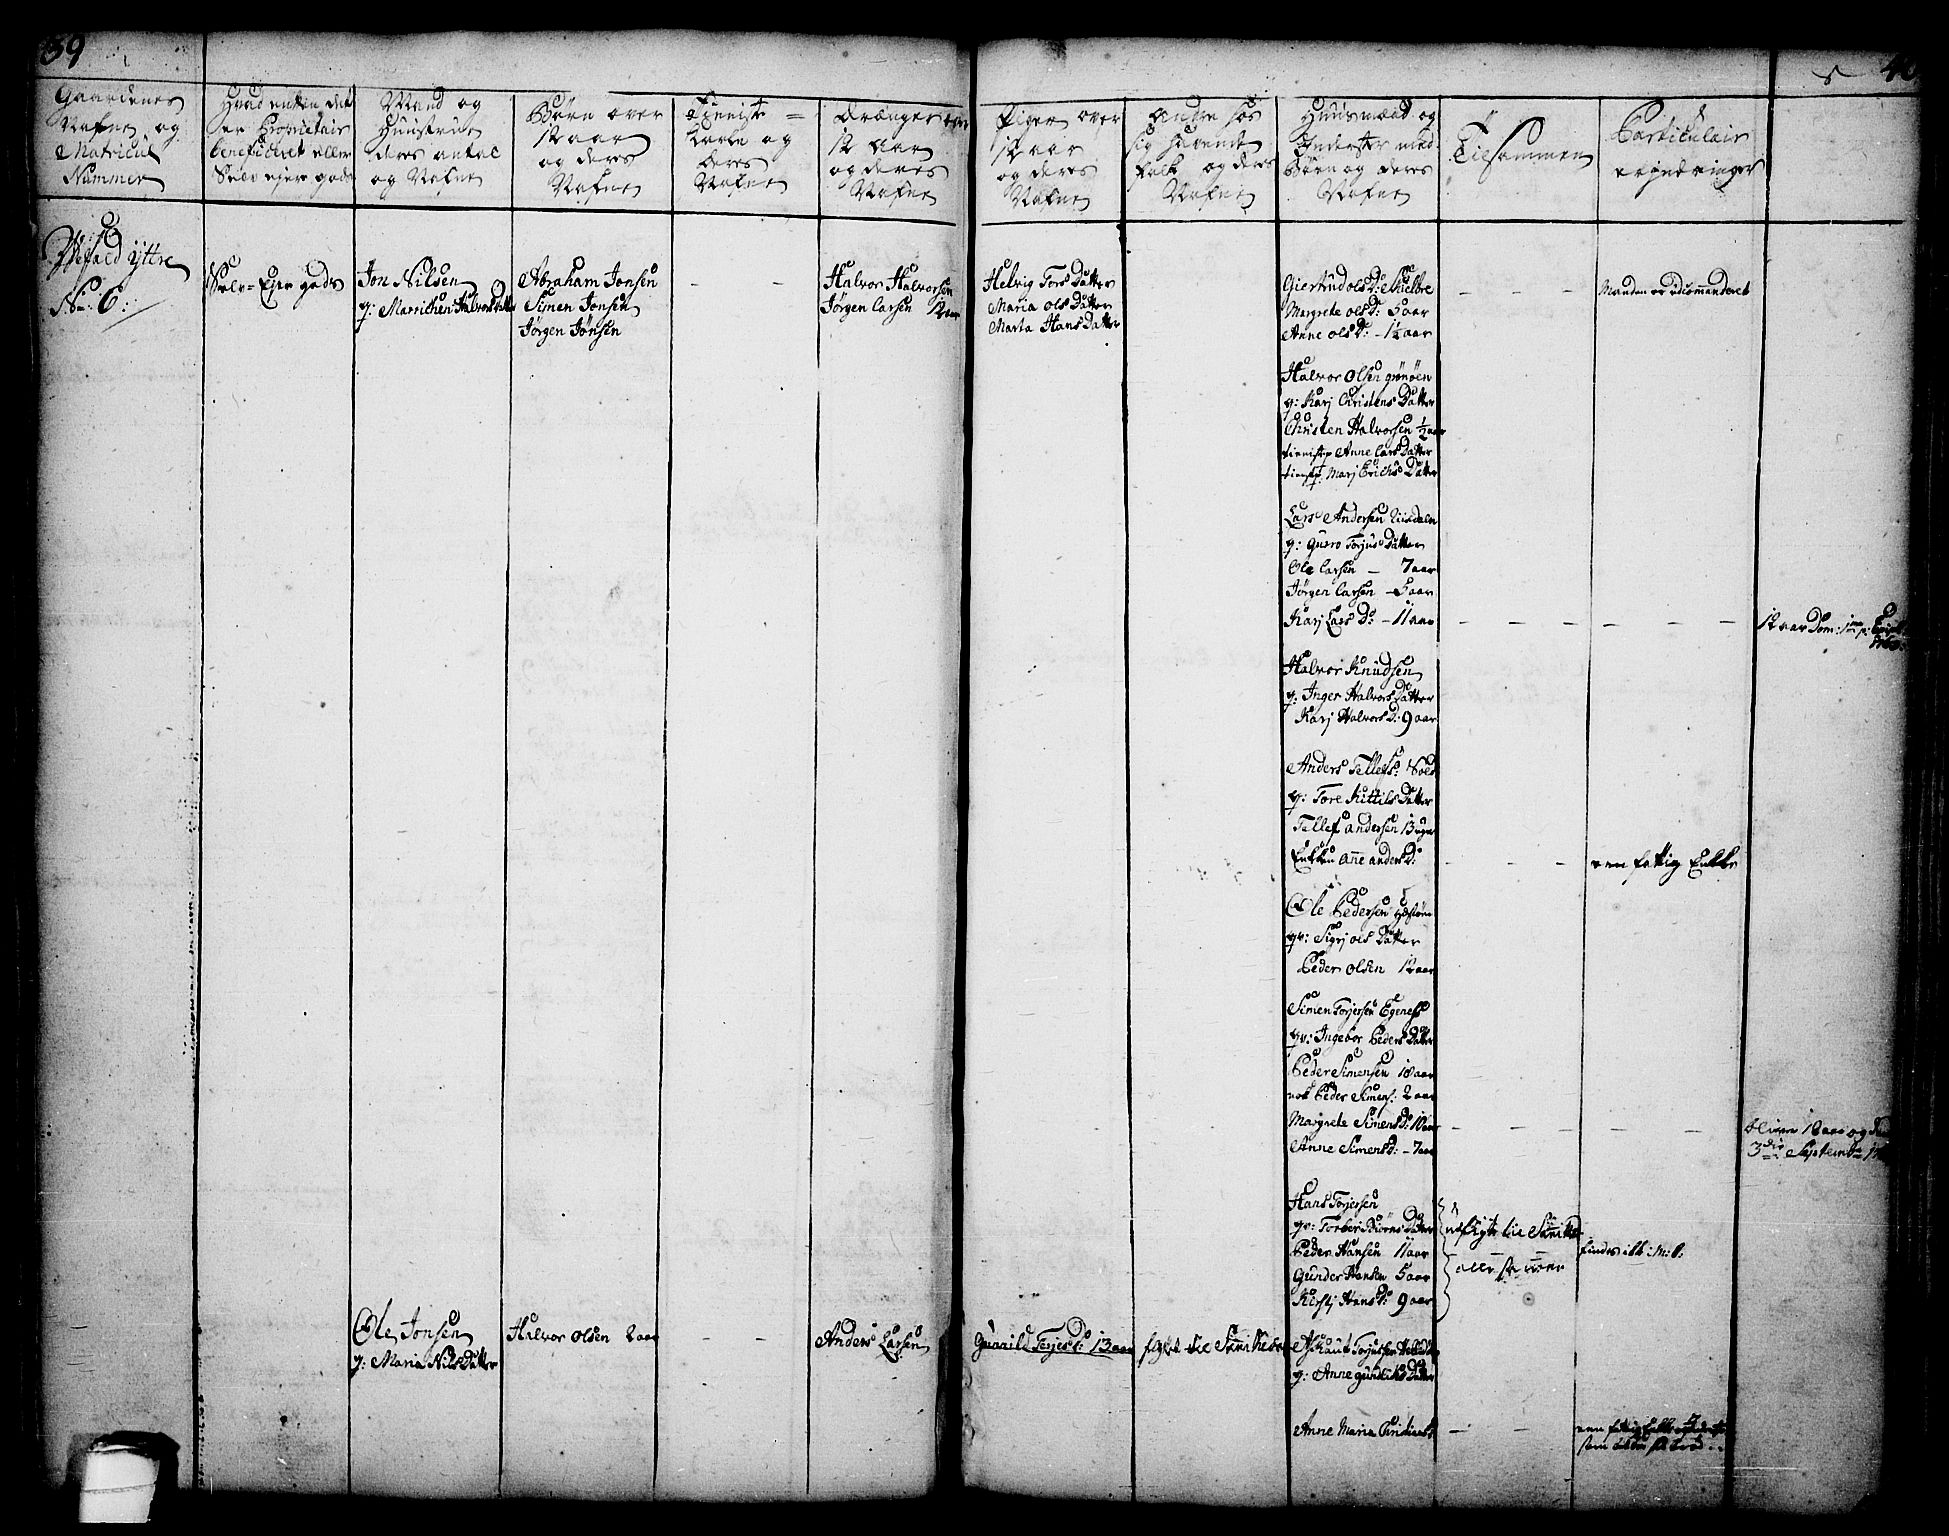 39
40
Gaardenes
Nafne og
Matricul
Nummer
Hvad enten det
er Proprietair
beneficeret eller
Selv ejer gods
Mand og
Huustrue
deres antal
og Nafne
Børn over
12 aar
og deres
Nafne
Tieniste=
Karle og
deres
Nafne
Drænger over
12 aar
og deres
Nafne
Piger over
12 aar
og deres
Nafne
Andre hos
sig havende
folk og deres
Nafne
Huusmænd og
Inderster med
Børn og deres
Nafne
Tilsammen
Particulair
erindringer
Ytre
No: 6:
Selv=Ejer gods
Jon Nilsen
q: Marrithen Halvors datter
Abraham Jonsen
Simen Jonsen
Jørgen Jonsen
- -
Halvor Halvorsen
Jørgen Larsen 12 aar
Helvig Tors Datter
Maria ols Datter
Marta Hans Datter
Giertrud ols D:
Margrete ols D: 5 aar
Anne ols D: - 1½ aar
- - -
Manden er udcommanderet
Halvor Olsen grønøen
q: Karj Christens Datter
Christen Halvorsen ½ aar
tienistp Anne Lars Datter
tienistp: Marj Erichs Datter
Lars Andersen
q: Guero Torjus Datter
Ole Larsen - 7 aar
Jørgen Larsen - 5 aar
Karj Lars D: - 11 aar
- - - - - -
12 aar Dom: 1ma p:
Halvor Knudsen
q: Inger Halvors Datter
Karj Halvors D: 9 aar
Anders Tellefs:
q: Tore Kittils Datter
Tellef andersen 13 uger
Enken Anne anders D:
- - -
een fattig Enke
Ole Pedersen
qv: Sigrj ols Datter
Peder Olsen 12 aar
Simen Torjersen Egenes
qv: Ingebor Peders Datter
Peder Simensen 18 aar
nok Peder Simens: 2 aar
Margrete Simens D: 10 aar
Anne Simens D: - 7 aar
- - - - - -
bliver 18 aar og
3die September
Hans Torjersen
qv: Torber Biørns Datter
Peder Hansen 11 aar
Gunder Hansen 5 aar
Kirstj Hans D: 9 aar
flyt til
findes ibb: N: 8:
Ole Jonsen
q: Maria Nils Datter
Halvor Olsen 2 aar
- -
Anders Larsen
Gunnild Torjes D: 13 aar
flyt til
Aslaut Torjussen
q: Anne gundleks Datter
Anne Maria Christians D:
- -
een fattig
som